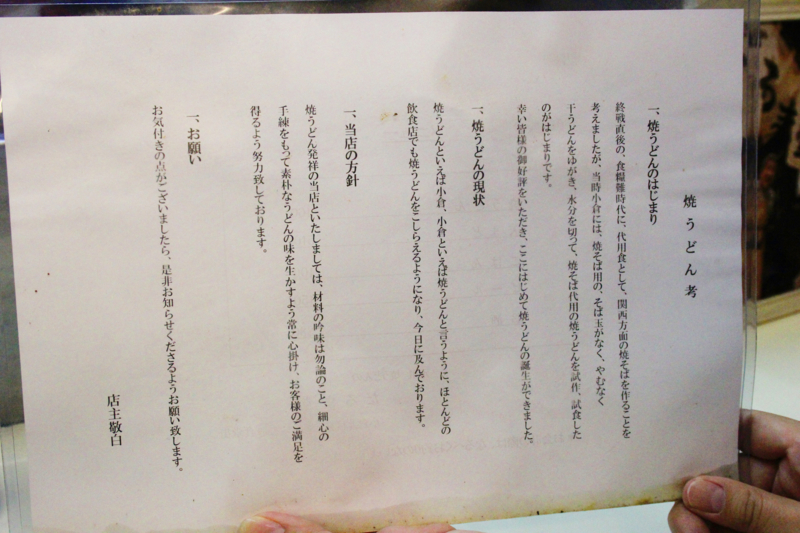 焼うどん考
一、焼うどんのはじまり
終戦直後の、食糧難時代に、代用食として、関西方面の焼そばを作ることを
考えましたが、当時小倉には、焼そば用の、そば玉がなく、やむなく
干うどんをゆがき、水分を切って、焼そば代用の焼うどんを試作、試食した
のがはじまりです。
幸い皆様の御好評をいただき、ここにはじめて焼うどんの誕生ができました。
一、焼うどんの現状
焼うどんといえば小倉、小倉といえば焼うどんと言うように、ほとんどの
飲食店でも焼うどんをこしらえるようになり、今日に及んでおります。
一、当店の方針
焼うどん発祥の当店といたしましては、材料の吟味は勿論のこと、細心の
手練をもって素朴なうどんの味を生かすよう常に心掛け、お客様のご満足を
得るよう努力致しております。
一、お願い
お気付きの点がございましたら、是非お知らせくださるようお願い致します。
店主敬白